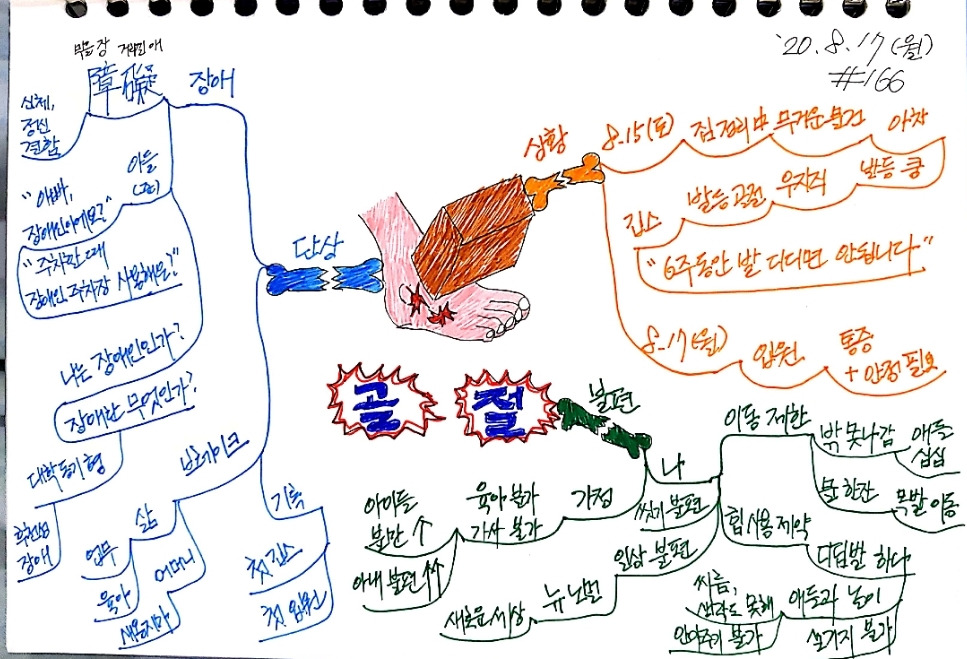 '20. 8. 17 (월)
#166
골절
상황
8.15(토)
집 정리 中
무거운 물건
아차
발등 쿵
우지직
발등 골절
깁스
"6주동안 발 디디면 안됩니다"
8.17(월)
입원
통증
+ 안정 필요
단상
장애
막을 장 거리낄 애
障礙
신체,
정신
결함
아들
"아빠,
장애인이에요?"
장애인 주차장 사용해요?"
나는 장애인인가?
장애란 무엇인가?
대학동기 형
후천성
장애
브레이크
삶
업무
육아
어머니
새옹지마
기록
첫 깁스
첫 입원
불편
나
이동 제한
밖 못나감
애들
심심
물 한잔
목발 이동
씻기 불편
힘 사용 제약
디딤발 하나
애들과 놀이
씨름,
생각도 못해
안아주기 불가
설거지 불가
일상 불편
뉴 노멀
새로운 세상
가정
육아 불가
가사 불가
아이들
불만 ↑
아내 불편 ↑↑